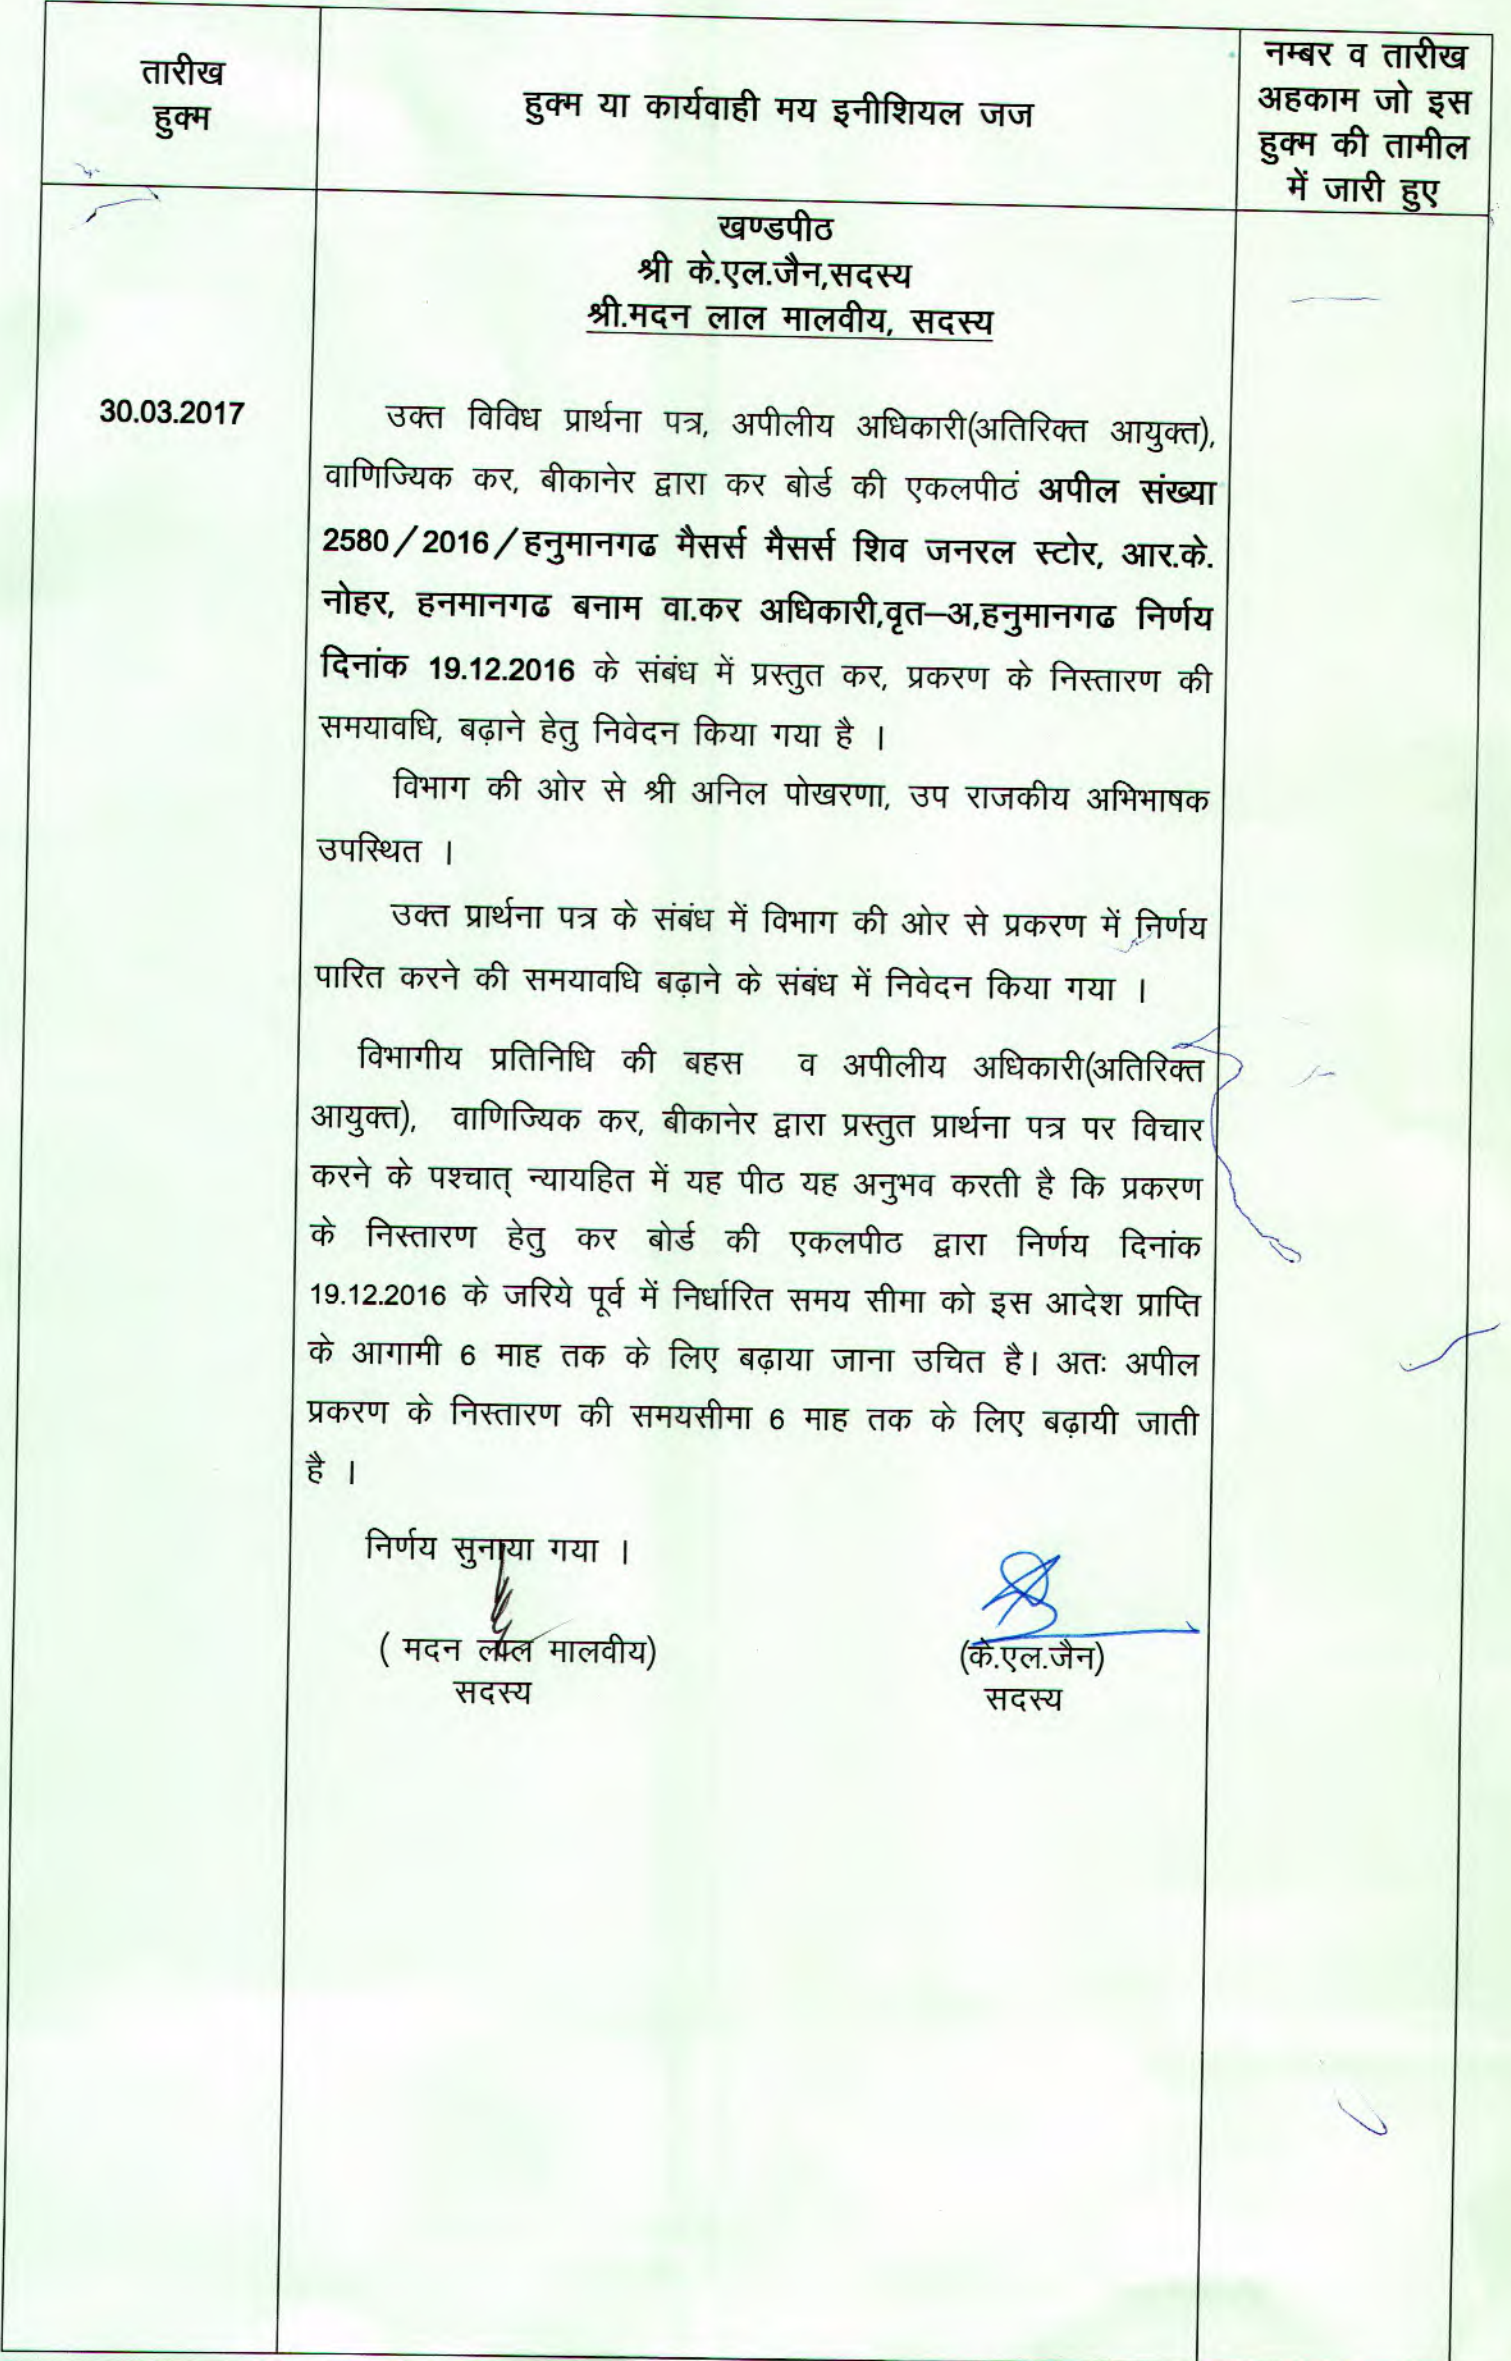 तारीख
हुक्म
हुक्म या कार्यवाही मय इनीशियल जज
नम्बर व तारीख
अहकाम जो इस
हुक्म की तामील
में जारी हुए
खण्डपीठ
श्री के.एल.जैन,सदस्य
श्री.मदन लाल मालवीय, सदस्य
30.03.2017
उक्त विविध प्रार्थना पत्र, अपीलीय अधिकारी(अतिरिक्त आयुक्त),
वाणिज्यिक कर, बीकानेर द्वारा कर बोर्ड की एकलपीठं अपील संख्या
2580/2016/हनुमानगढ मैसर्स मैसर्स शिव जनरल स्टोर, आर.के.
नोहर, हनमानगढ बनाम वा.कर अधिकारी,वृत–अ,हनुमानगढ निर्णय
दिनांक 19.12.2016 के संबंध में प्रस्तुत कर, प्रकरण के निस्तारण की
समयावधि, बढ़ाने हेतु निवेदन किया गया है ।
विभाग की ओर से श्री अनिल पोखरणा, उप राजकीय अभिभाषक
उपस्थित ।
उक्त प्रार्थना पत्र के संबंध में विभाग की ओर से प्रकरण में निर्णय
पारित करने की समयावधि बढ़ाने के संबंध में निवेदन किया गया ।
विभागीय प्रतिनिधि की बहस व अपीलीय अधिकारी(अतिरिक्त
आयुक्त), वाणिज्यिक कर, बीकानेर द्वारा प्रस्तुत प्रार्थना पत्र पर विचार
करने के पश्चात् न्यायहित में यह पीठ यह अनुभव करती है कि प्रकरण
के निस्तारण हेतु कर बोर्ड की एकलपीठ द्वारा निर्णय दिनांक
19.12.2016 के जरिये पूर्व में निर्धारित समय सीमा को इस आदेश प्राप्ति
के आगामी 6 माह तक के लिए बढ़ाया जाना उचित है। अतः अपील
प्रकरण के निस्तारण की समयसीमा 6 माह तक के लिए बढ़ायी जाती
है ।
निर्णय सुनाया गया ।
( मदन लाल मालवीय)
सदस्य
(के.एल.जैन)
सदस्य